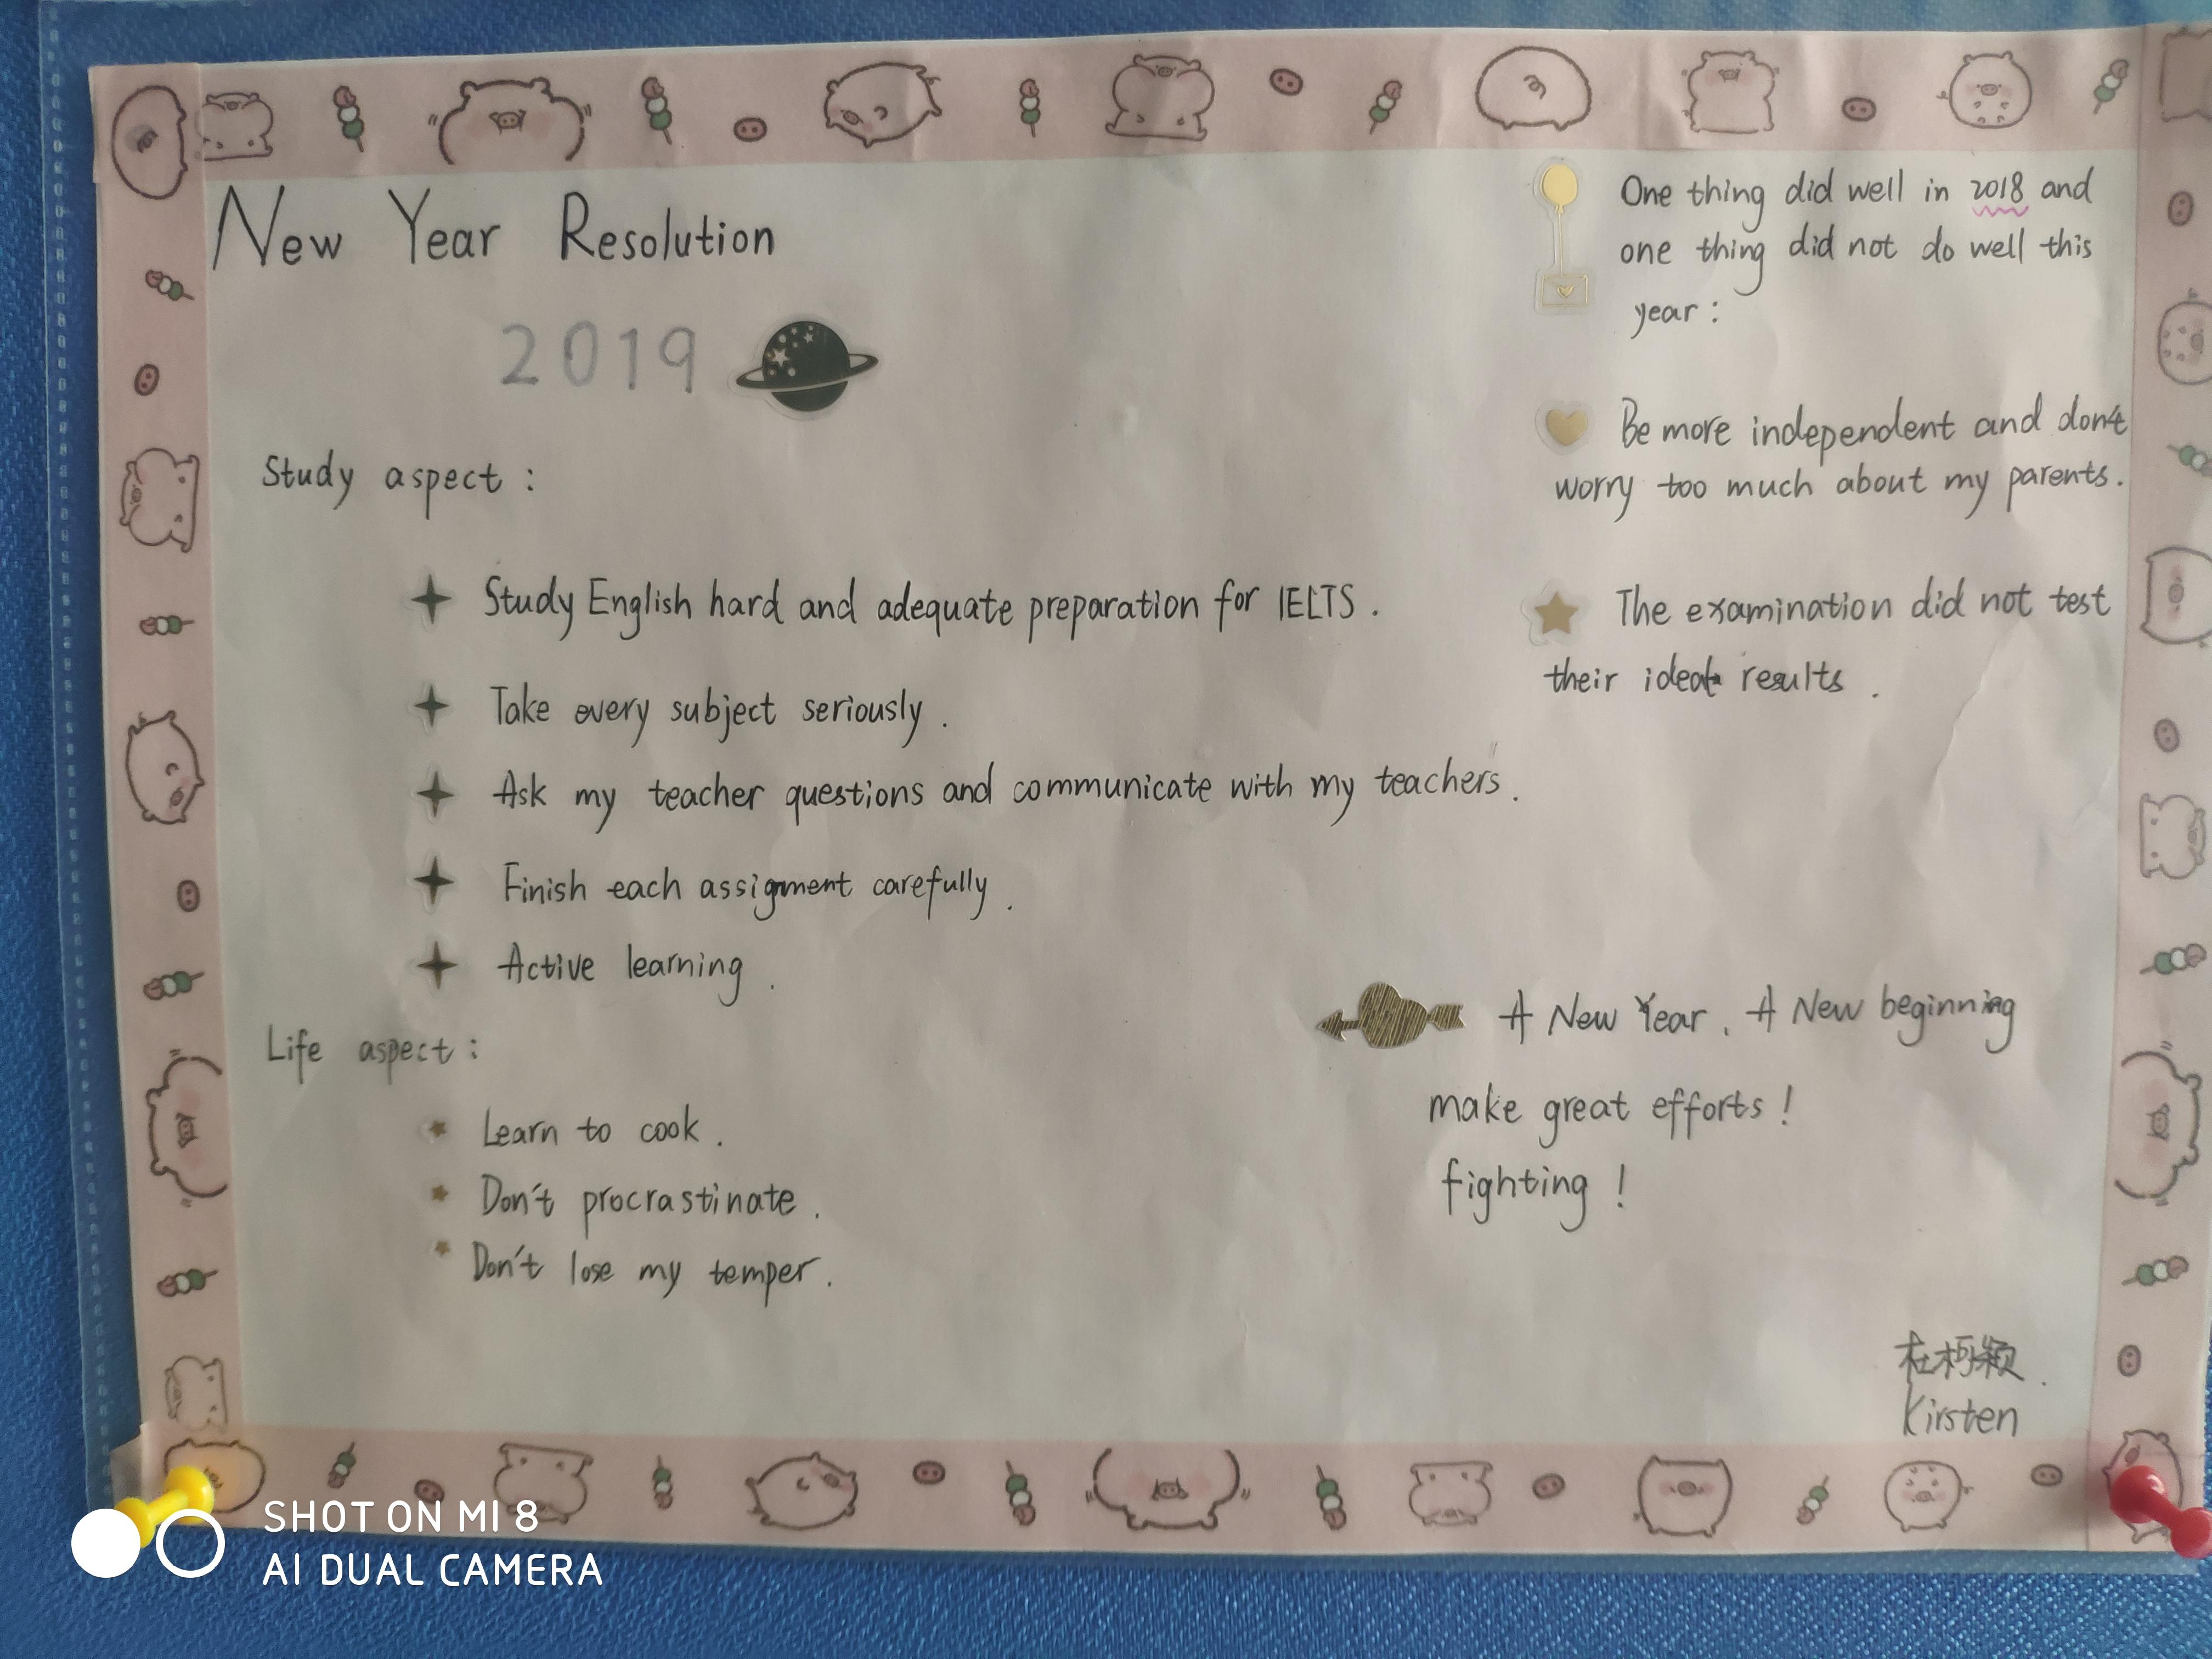 New Year Resolution
2019
Study aspect :
Study English hard and adequate preparation for IELTS .
Take every subject seriously .
Ask my teacher questions and communicate with my teachers .
Finish each assignment carefully .
Active learning .
Life aspect :
Learn to cook .
Don't procrastinate .
Don't lose my temper .
One thing did well in 2018 and
one thing did not do well this
year :
Be more independent and don't
worry too much about my parents .
The examination did not test
their results .
A New Year . A New beginning
make great efforts !
fighting !
杜柯颖 .
Kirsten
SHOT ON MI 8
AI DUAL CAMERA